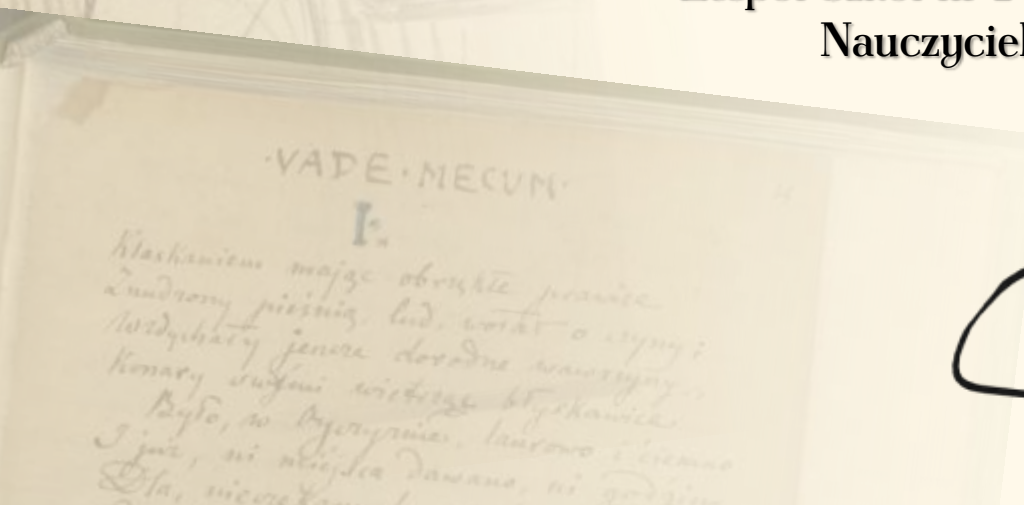 Nauczyciel
·VADE·MECUM·
I.
Klaskaniem mając obrzękłe prawice
Znudzony pieśnią, lud, wołał o czyny;
Wzdychały jeszcze dorodne wawrzyny,
Konary swymi wietrząc błyskawice.
Było, w Ojczyźnie, laurowo i ciemno
I już, ni miejsca dawano, ni godziny
Dla,